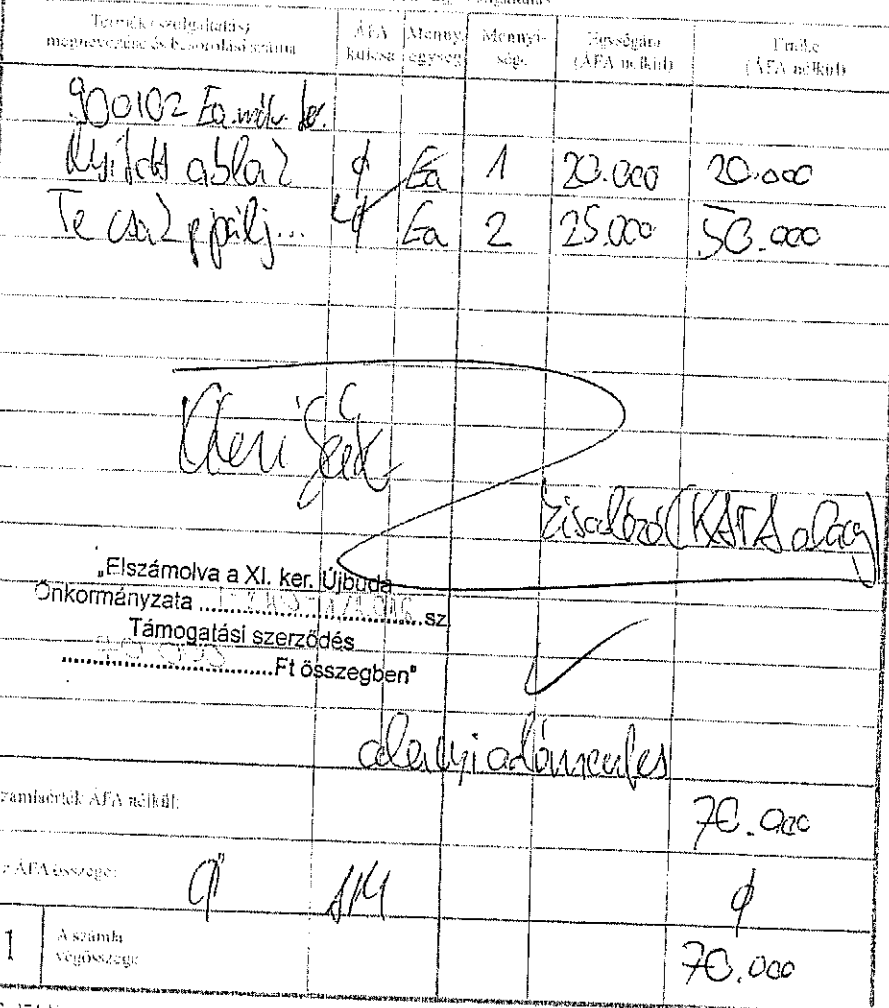 Termék (szolgáltatás) megnevezése és besorolási száma ÁFA kulcsa Menny. egység Mennyi-ség Egységára (ÁFA nélkül) Értéke (ÁFA nélkül)
900102 Ea.
Nyitott ablak ϕ Ea 1 20.000 20.000
Te csak pipálj... ϕ Ea 2 25.000 50.000
kisadózó (KATA alany)
„Elszámolva a XI. ker. Újbuda
Önkormányzata .......... sz.
Támogatási szerződés
.......... Ft összegben"
alanyi adómentes
számlaérték ÁFA nélkül: 70.000
z ÁFA összege: ϕ AM ϕ
1 A számla végösszege 70.000